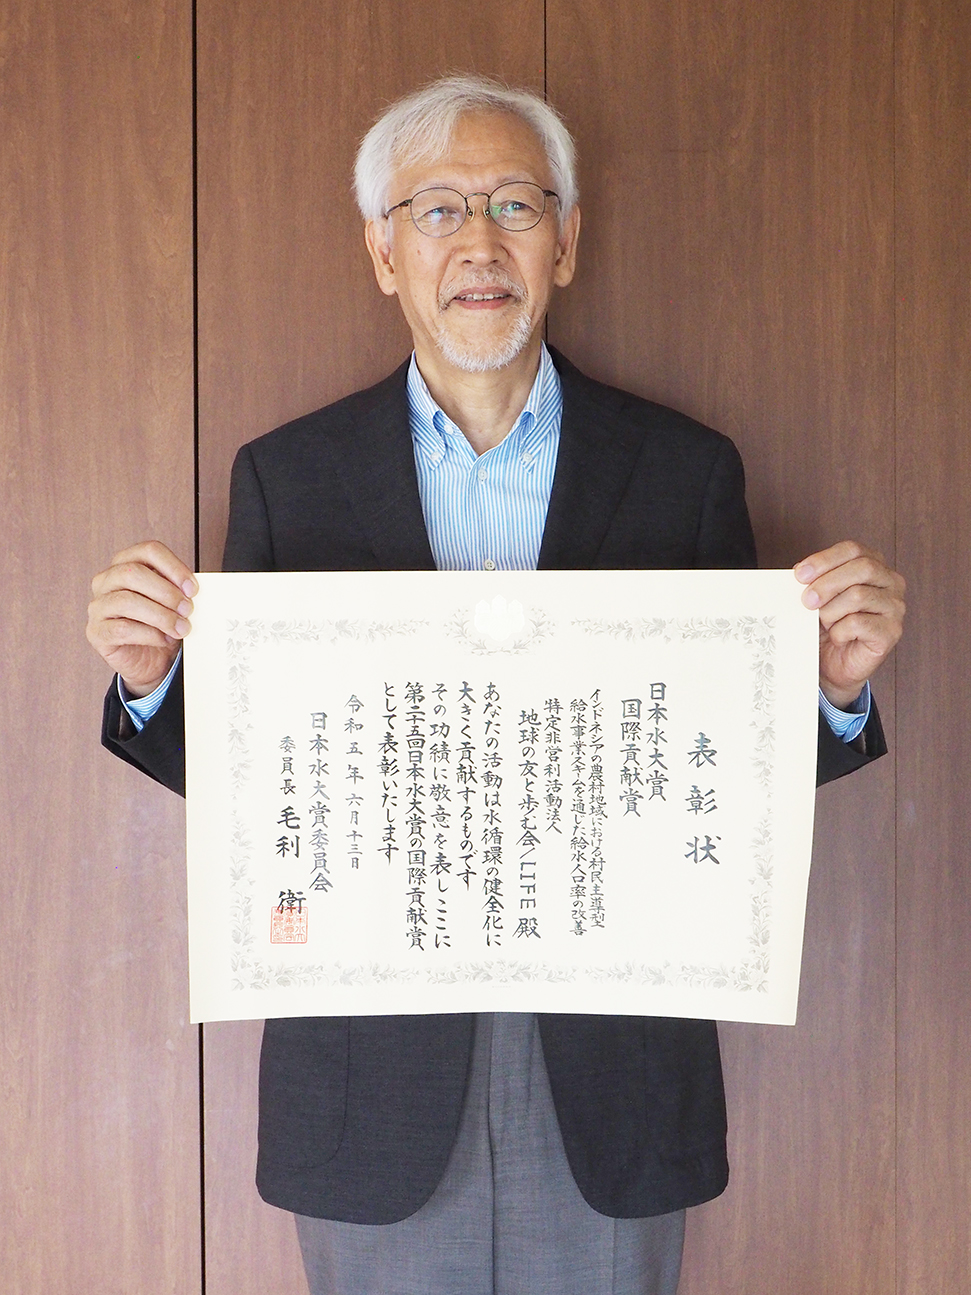 表彰状
日本水大賞
国際貢献賞
インドネシアの農村地域における村民主導型
給水事業スキームを通じた給水人口率の改善
特定非営利活動法人
地球の友と歩む会/LIFE 殿
あなたの活動は水循環の健全化に
大きく貢献するものです
その功績に敬意を表しここに
第二十五回日本水大賞の国際貢献賞
として表彰いたします
令和五年六月十三日
日本水大賞委員会
委員長 毛利 衛